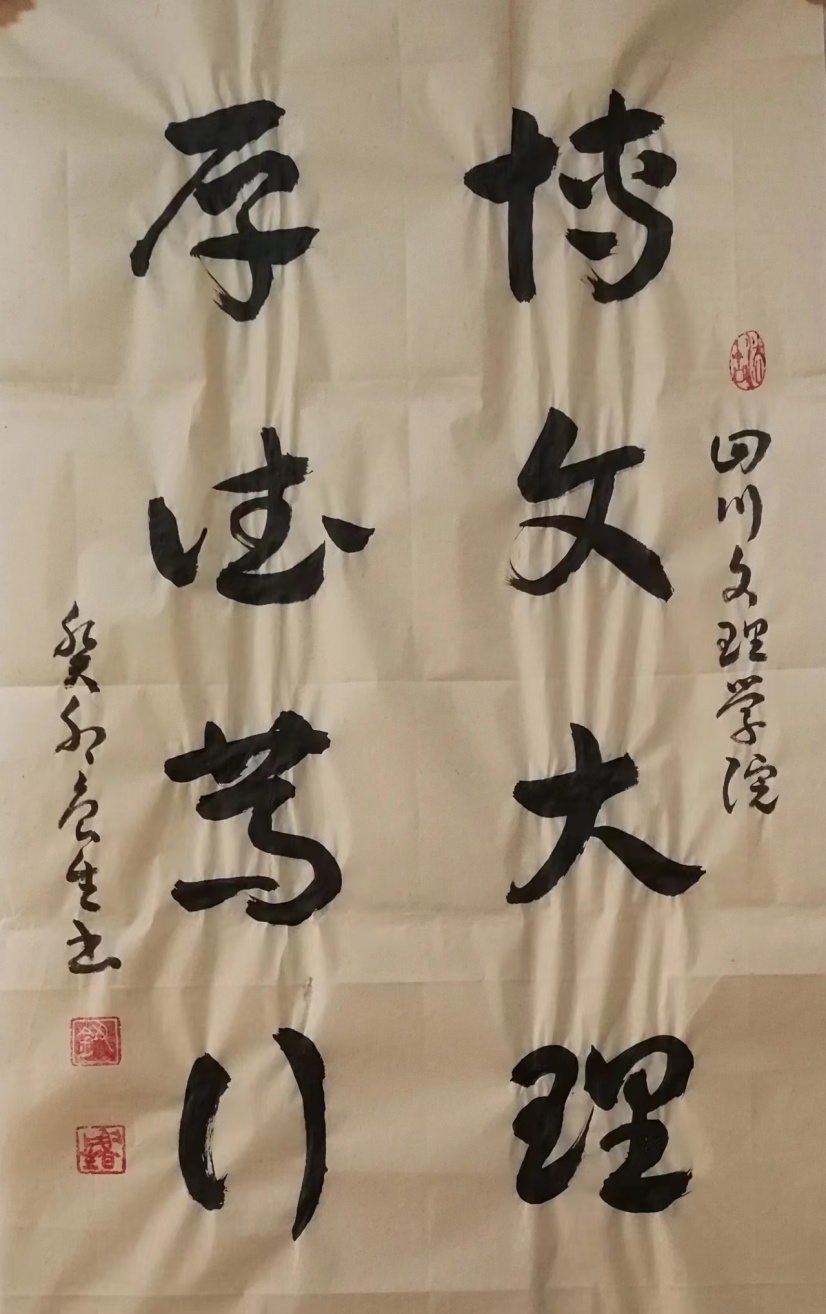 四川文理学院
博文大理
厚德笃行
癸卯生书